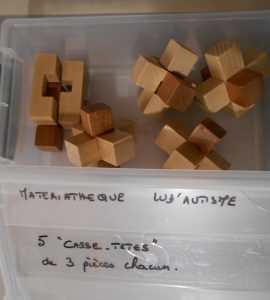 MATERIATHEQUE LUD'AUTISME
5 "CASSE-TETES"
de 3 pièces chacun.